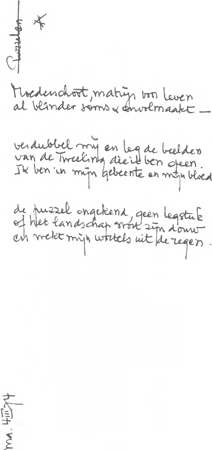 Puzzelen
Moederschoot, matrijs voor leven
al blinder soms & onvolmaakt —
verdubbel mij en leg de beelden
van de Tweeling die ik ben open.
Ik ben in mijn gebeente en mijn bloed
de puzzel ongekend, geen legstuk
of het landschap mort zijn douw
en wekt mijn wortels uit de regen.
ma. 4 III 74